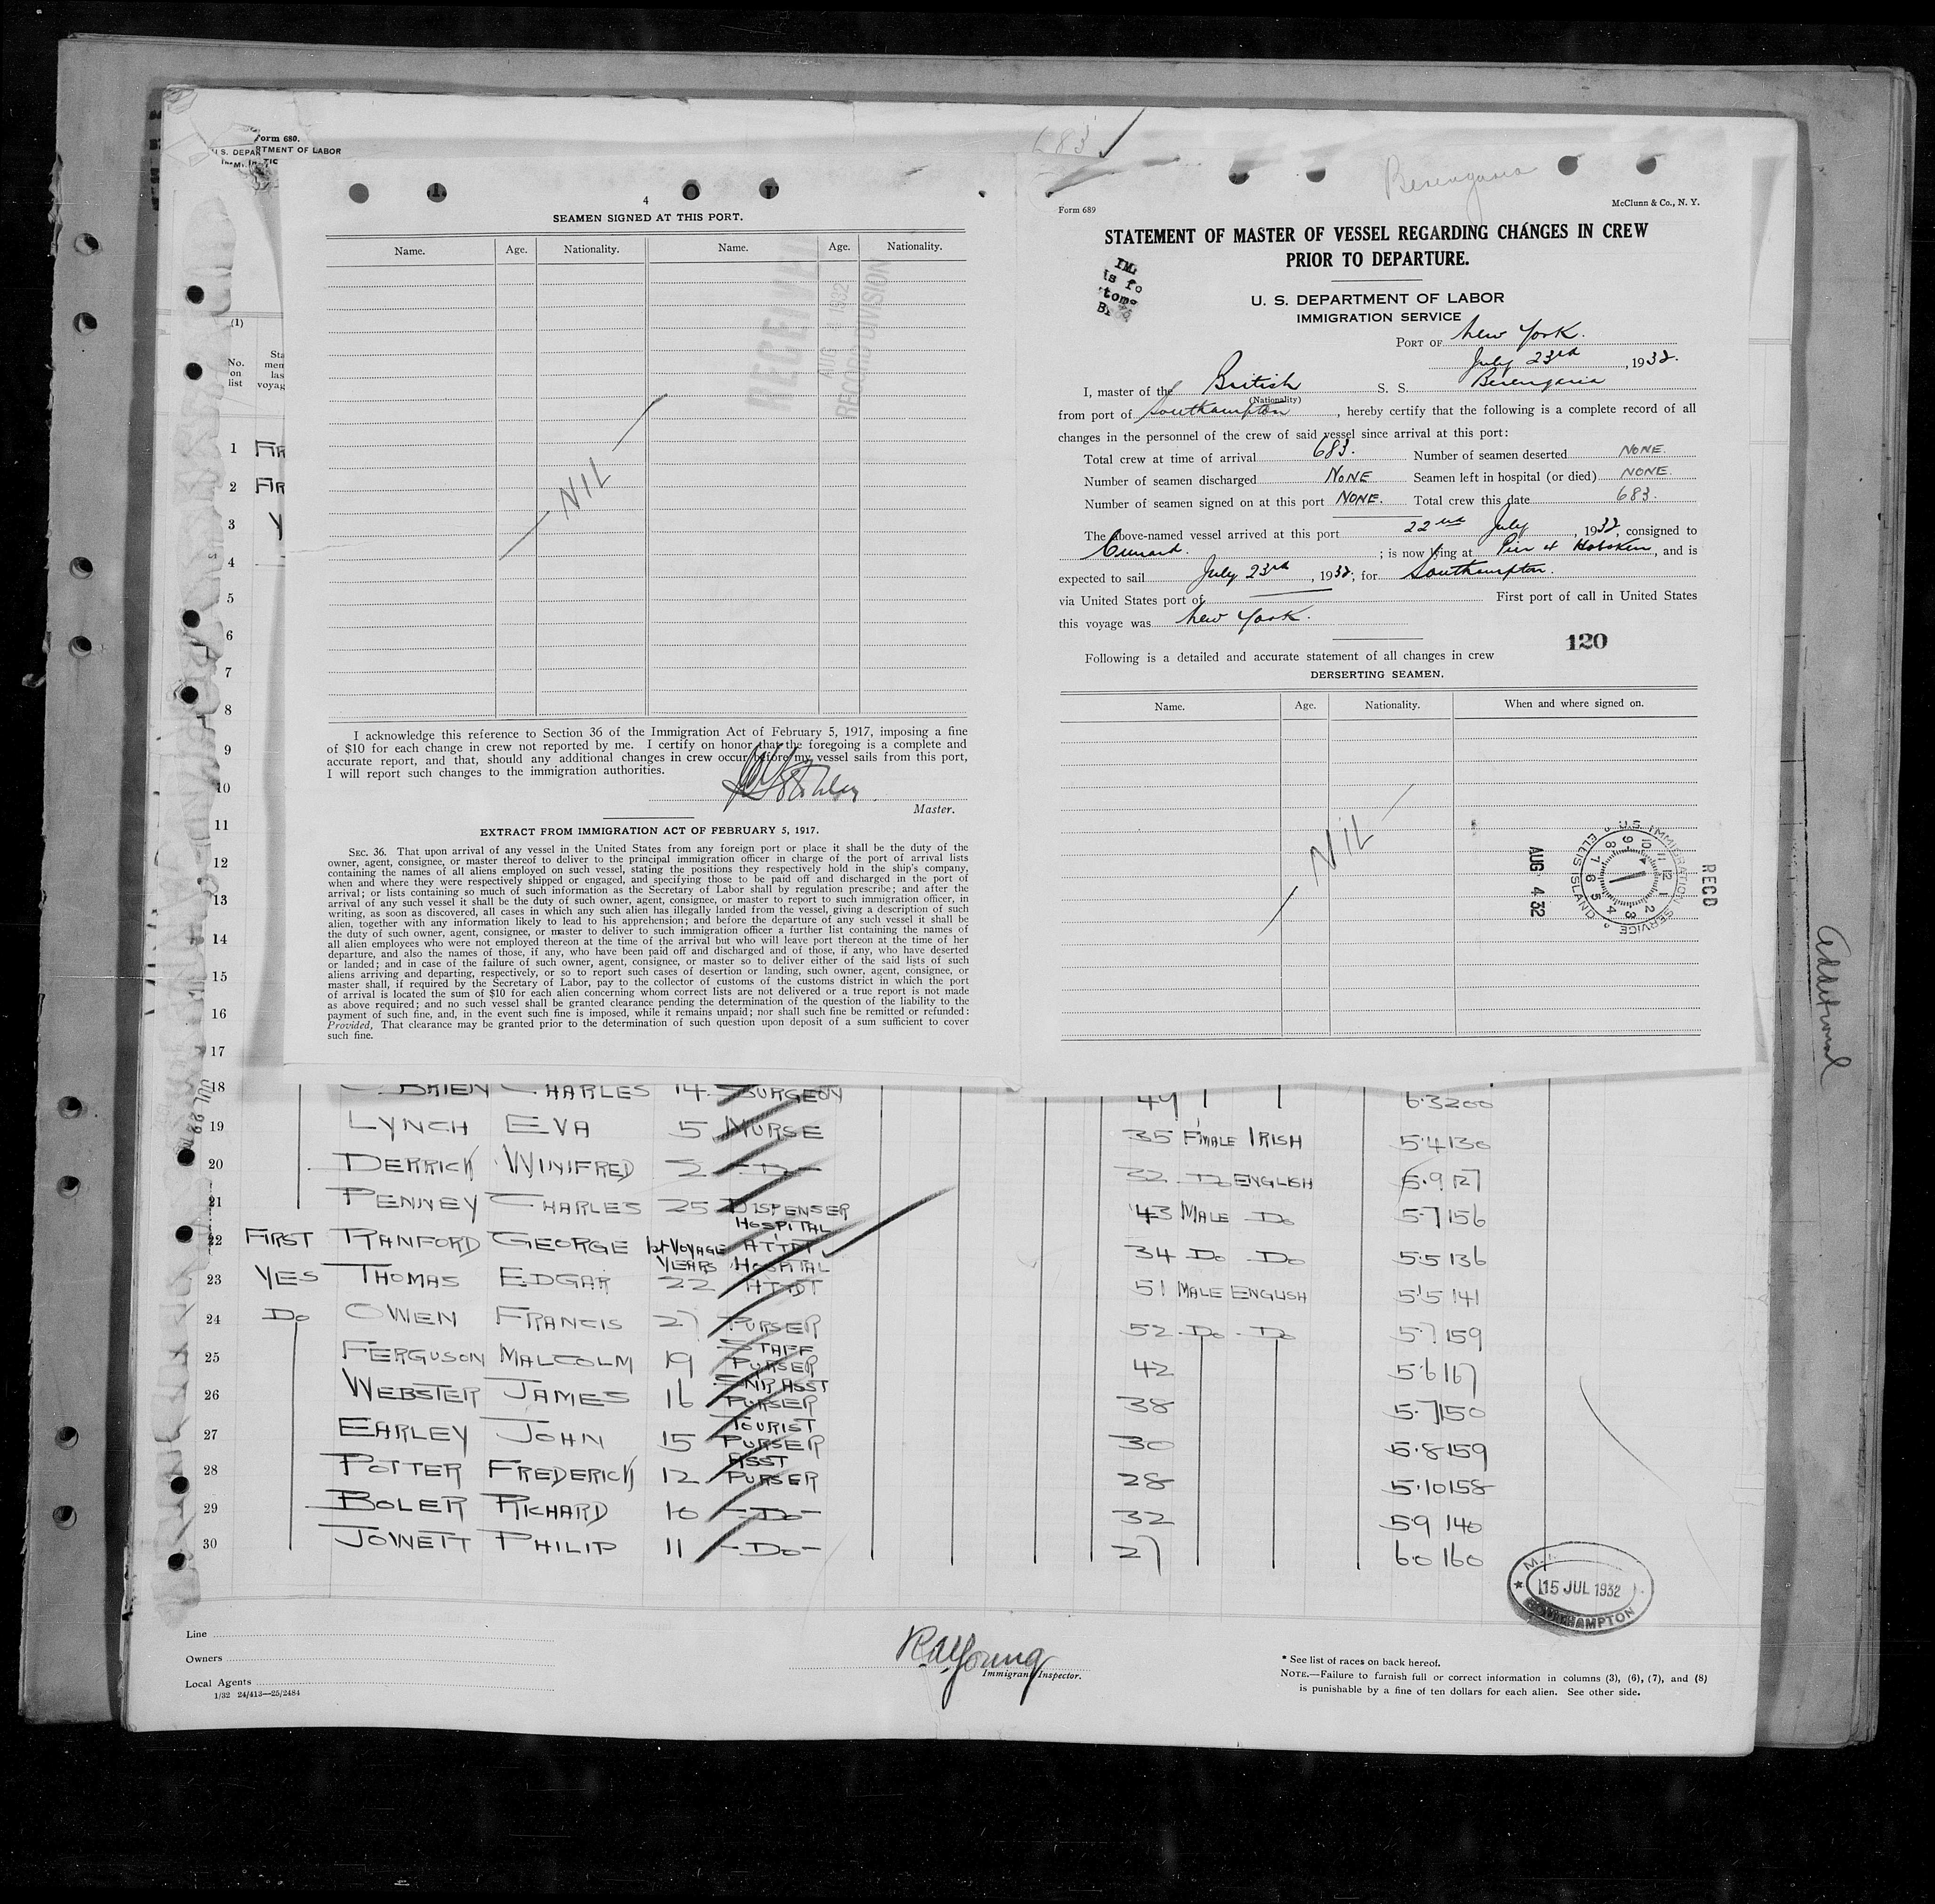 Form 680.
U. S. DEPARTMENT OF LABOR
4
SEAMEN SIGNED AT THIS PORT.
Name. Age. Nationality. Name. Age. Nationality.
RECEIVED
AUG 1932
RECORD DIVISION
NIL
I acknowledge this reference to Section 36 of the Immigration Act of February 5, 1917, imposing a fine
of $10 for each change in crew not reported by me. I certify on honor that the foregoing is a complete and
accurate report, and that, should any additional changes in crew occur before my vessel sails from this port,
I will report such changes to the immigration authorities.
Master.
EXTRACT FROM IMMIGRATION ACT OF FEBRUARY 5, 1917.
SEC. 36. That upon arrival of any vessel in the United States from any foreign port or place it shall be the duty of the
owner, agent, consignee, or master thereof to deliver to the principal immigration officer in charge of the port of arrival lists
containing the names of all aliens employed on such vessel, stating the positions they respectively hold in the ship's company,
when and where they were respectively shipped or engaged, and specifying those to be paid off and discharged in the port of
arrival; or lists containing so much of such information as the Secretary of Labor shall by regulation prescribe; and after the
arrival of any such vessel it shall be the duty of such owner, agent, consignee, or master to report to such immigration officer, in
writing, as soon as discovered, all cases in which any such alien has illegally landed from the vessel, giving a description of such
alien, together with any information likely to lead to his apprehension; and before the departure of any such vessel it shall be
the duty of such owner, agent, consignee, or master to deliver to such immigration officer a further list containing the names of
all alien employees who were not employed thereon at the time of the arrival but who will leave port thereon at the time of her
departure, and also the names of those, if any, who have been paid off and discharged and of those, if any, who have deserted
or landed; and in case of the failure of such owner, agent, consignee, or master so to deliver either of the said lists of such
aliens arriving and departing, respectively, or so to report such cases of desertion or landing, such owner, agent, consignee, or
master shall, if required by the Secretary of Labor, pay to the collector of customs of the customs district in which the port
of arrival is located the sum of $10 for each alien concerning whom correct lists are not delivered or a true report is not made
as above required; and no such vessel shall be granted clearance pending the determination of the question of the liability to the
payment of such fine, and, in the event such fine is imposed, while it remains unpaid; nor shall such fine be remitted or refunded:
Provided, That clearance may be granted prior to the determination of such question upon deposit of a sum sufficient to cover
such fine.
683
Berengaria
Form 689
McClunn & Co., N. Y.
STATEMENT OF MASTER OF VESSEL REGARDING CHANGES IN CREW
PRIOR TO DEPARTURE.
U. S. DEPARTMENT OF LABOR
IMMIGRATION SERVICE
PORT OF New York.
July 23rd, 1932.
I, master of the British S. S. Berengaria
(Nationality)
from port of Southampton, hereby certify that the following is a complete record of all
changes in the personnel of the crew of said vessel since arrival at this port:
Total crew at time of arrival 683. Number of seamen deserted NONE.
Number of seamen discharged NONE Seamen left in hospital (or died) NONE.
Number of seamen signed on at this port NONE. Total crew this date 683.
The above-named vessel arrived at this port 22nd July, 1932, consigned to
Cunard. ; is now lying at Pier 4 Hoboken, and is
expected to sail July 23rd, 1932; for Southampton.
via United States port of First port of call in United States
this voyage was New York.
120
Following is a detailed and accurate statement of all changes in crew
DERSERTING SEAMEN.
Name. Age. Nationality. When and where signed on.
NIL
U.S. IMMIGRATION SERVICE
ELLIS ISLAND
AUG 4 32
RECD
Additional
(1)
No. on list
1
2
3
4
5
6
7
8
9
10
11
12
13
14
15
16
17
18 O'BRIEN CHARLES 14 SURGEON 49 6.3 200
19 LYNCH EVA 5 NURSE 35 F'MALE IRISH 5.4 130
20 DERRICK WINIFRED 2 -DO- 32 DO ENGLISH 5.9 127
21 PENNEY CHARLES 25 DISPENSER 43 MALE DO 5.7 156
22 FIRST RANFORD GEORGE 1st VOYAGE HOSPITAL ATTDT 34 DO DO 5.5 136
23 YES THOMAS EDGAR YEARS 22 HOSPITAL ATTDT 51 MALE ENGLISH 5.5 141
24 DO OWEN FRANCIS 27 PURSER 52 DO DO 5.7 159
25 FERGUSON MALCOLM 19 STAFF PURSER 42 5.6 167
26 WEBSTER JAMES 16 SNR ASST PURSER 38 5.7 150
27 EARLEY JOHN 15 TOURIST PURSER 30 5.8 159
28 POTTER FREDERICK 12 ASST PURSER 28 5.10 158
29 BOLER RICHARD 10 -DO- 32 5.9 140
30 JOWETT PHILIP 11 -DO- 27 6.0 160
15 JUL 1932
SOUTHAMPTON
Line
Owners
Local Agents
1/32 24/413—25/2484
R.W. Young
Immigrant Inspector.
* See list of races on back hereof.
NOTE.—Failure to furnish full or correct information in columns (3), (6), (7), and (8)
is punishable by a fine of ten dollars for each alien. See other side.